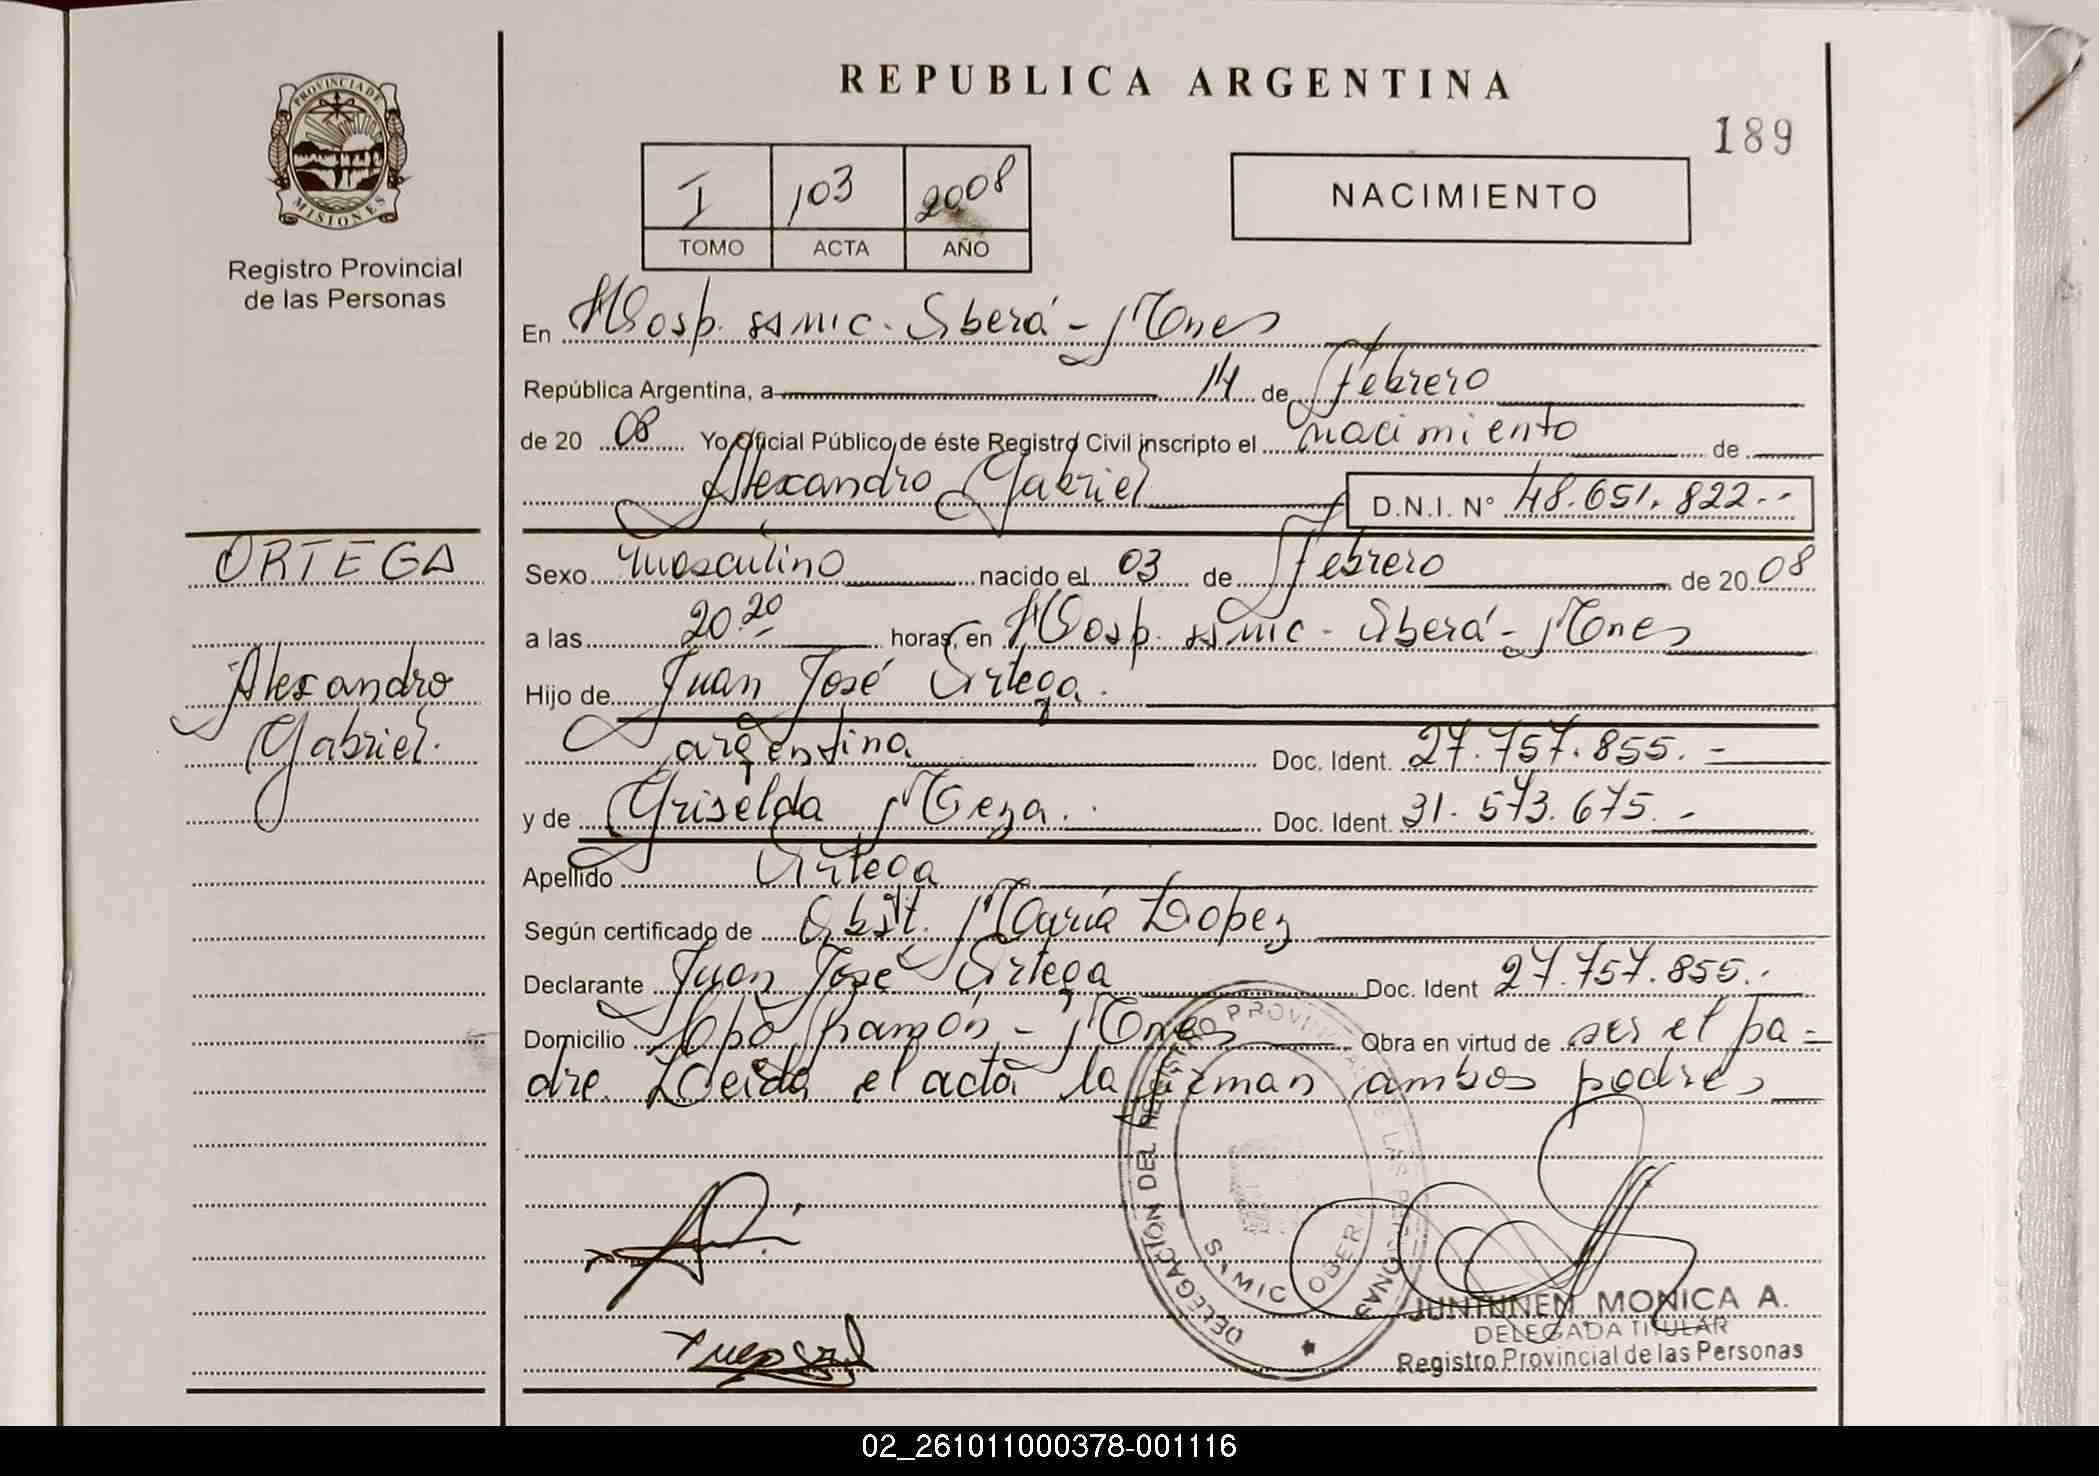 REPUBLICA ARGENTINA
189
PROVINCIA DE
MISIONES
Registro Provincial
de las Personas
I 103 2008
TOMO ACTA AÑO
NACIMIENTO
En Hosp. ssmic. Oberá - Mnes
República Argentina, a 14 de Febrero
de 20 08 Yo Oficial Público de éste Registro Civil inscripto el nacimiento de
Alexandro Gabriel D.N.I. N° 48.651.822.-
ORTEGA
Alexandro
Gabriel.
Sexo masculino nacido el 03 de Febrero de 20 08
a las 20.20 horas, en Hosp. ssmic - Oberá - Mnes
Hijo de Juan José Ortega.
argentina Doc. Ident. 27.757.855.-
y de Griselda Meza. Doc. Ident. 31.573.675.-
Apellido Ortega
Según certificado de Obst. María Lopez
Declarante Juan José Ortega Doc. Ident 27.757.855.-
Domicilio Cpo Ramón - Mnes Obra en virtud de ser el pa=
dre. Leida el acta la firman ambos padres
DELEGACIÓN DEL REGISTRO PROVINCIAL DE LAS PERSONAS
SAMIC OBERA
JUNTUNEN MONICA A.
DELEGADA TITULAR
Registro Provincial de las Personas
02_261011000378-001116